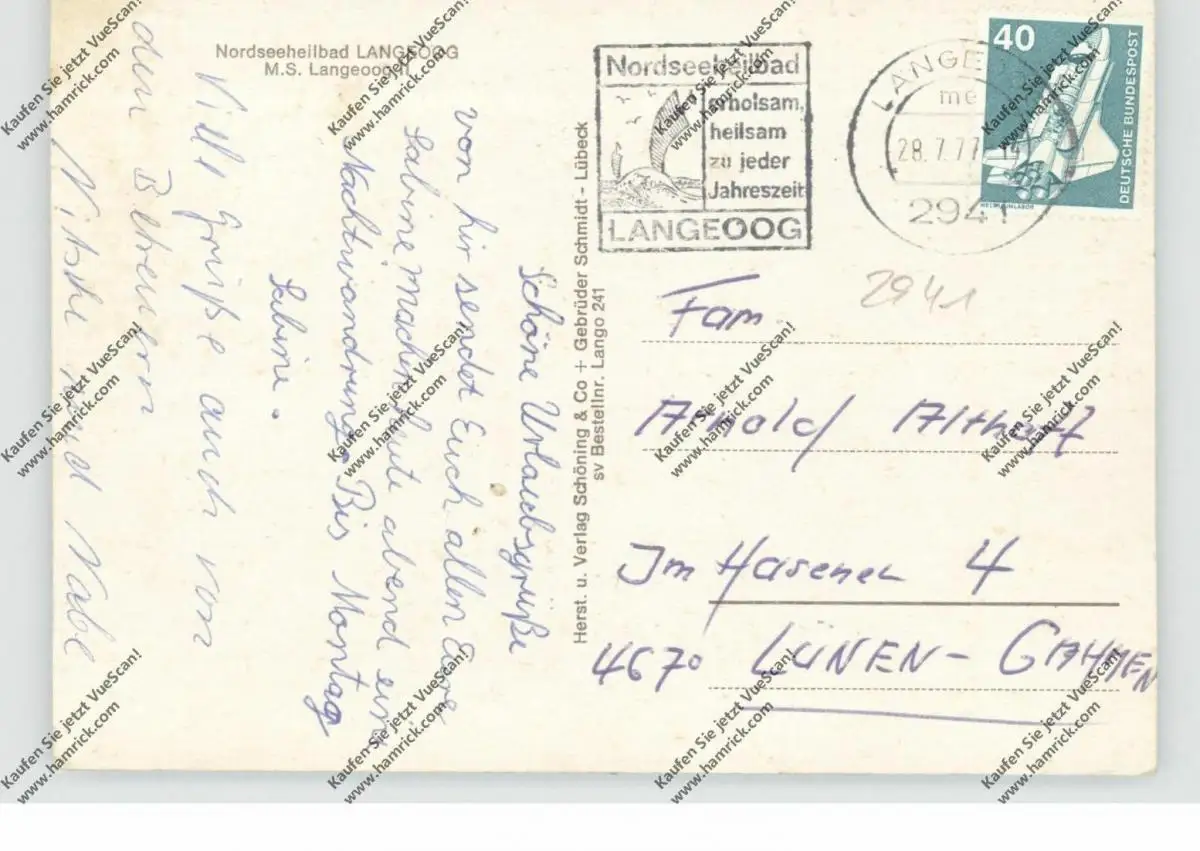 Nordseeheilbad LANGEOOG
M.S. Langeoog II
Schöne Urlaubsgrüße
von hir sendet Euch allen Eure
Sabine machen heute abend eine
Nachtwandrung. Bis Montag
Sabine.
Ville Grüße auch von
den Betreuern
Nitsche und
Herst. u. Verlag Schöning & Co + Gebrüder Schmidt - Lübeck
sv Bestellnr. Lango 241
Nordseeheilbad
erholsam,
heilsam
zu jeder
Jahreszeit
LANGEOOG
28.7.77
2941
40
DEUTSCHE BUNDESPOST
2941
Fam
Arnold Althoff
Im Hasenei 4
4670 LÜNEN - GAHMEN
Kaufen Sie jetzt VueScan!
www.hamrick.com